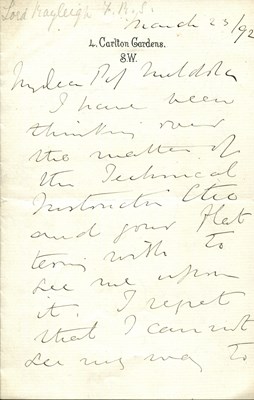 Lord Rayleigh F.R.S.
March 23/92
4. Carlton Gardens.
S.W.
My dear Prof Meldola
I have been
thinking over
the matter of
the Technical
Instructn Ctee
and your
term with to
see me upon
it. I regret
that I cannot
see my way to